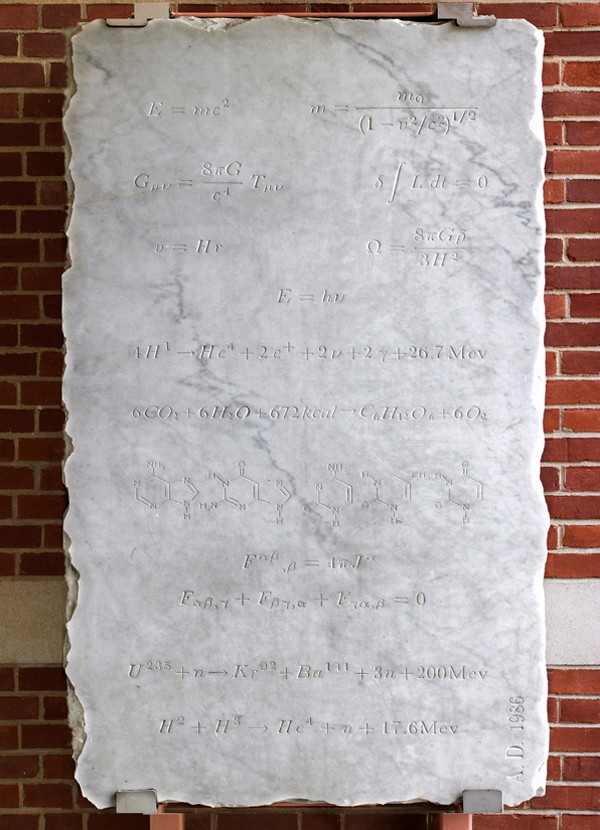 E = mc² m = m₀/(1 − v²/c²)^1/2
G_μν = 8πG/c⁴ T_μν δ∫L dt = 0
v = Hr Ω = 8πGρ̄/3H²
E = hν
4H¹→He⁴+2e⁺+2ν+2γ+26.7Mev
6CO₂+6H₂O+672kcal→C₆H₁₂O₆+6O₂
F^αβ,_β = 4πJ^α
F_αβ,γ + F_βγ,α + F_γα,β = 0
U²³⁵+n→Kr⁹²+Ba¹⁴¹+3n+200Mev
H² + H³ → He⁴ + n + 17.6Mev
A.D. 1986